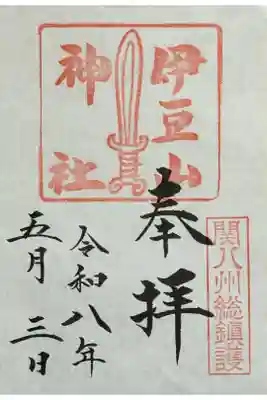 伊豆山
神社
関八州総鎮護
奉拝
令和八年
五月三日